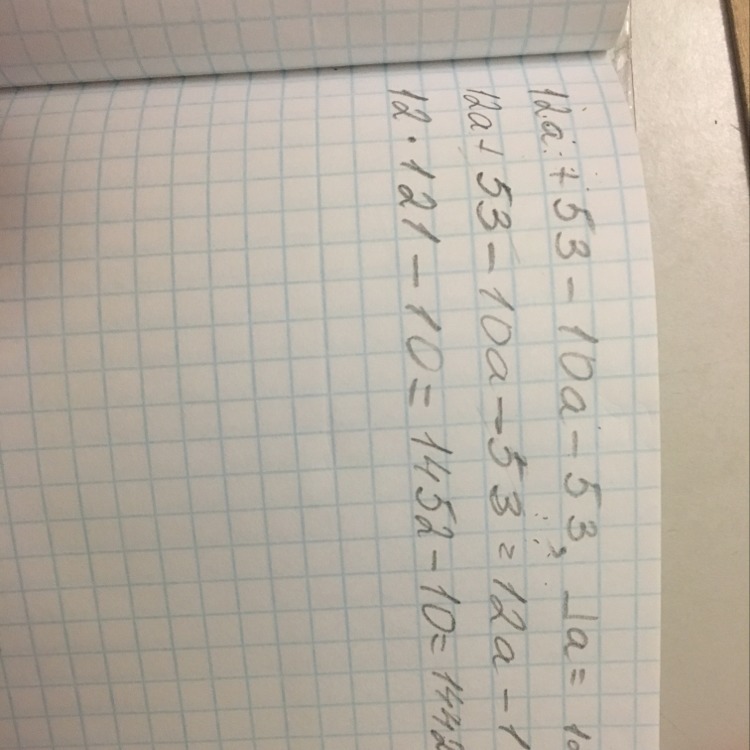 12a + 53 - 10a - 53, a =
12a + 53 - 10a - 53 = 12a - 1
12 · 121 - 10 = 1452 - 10 = 1442